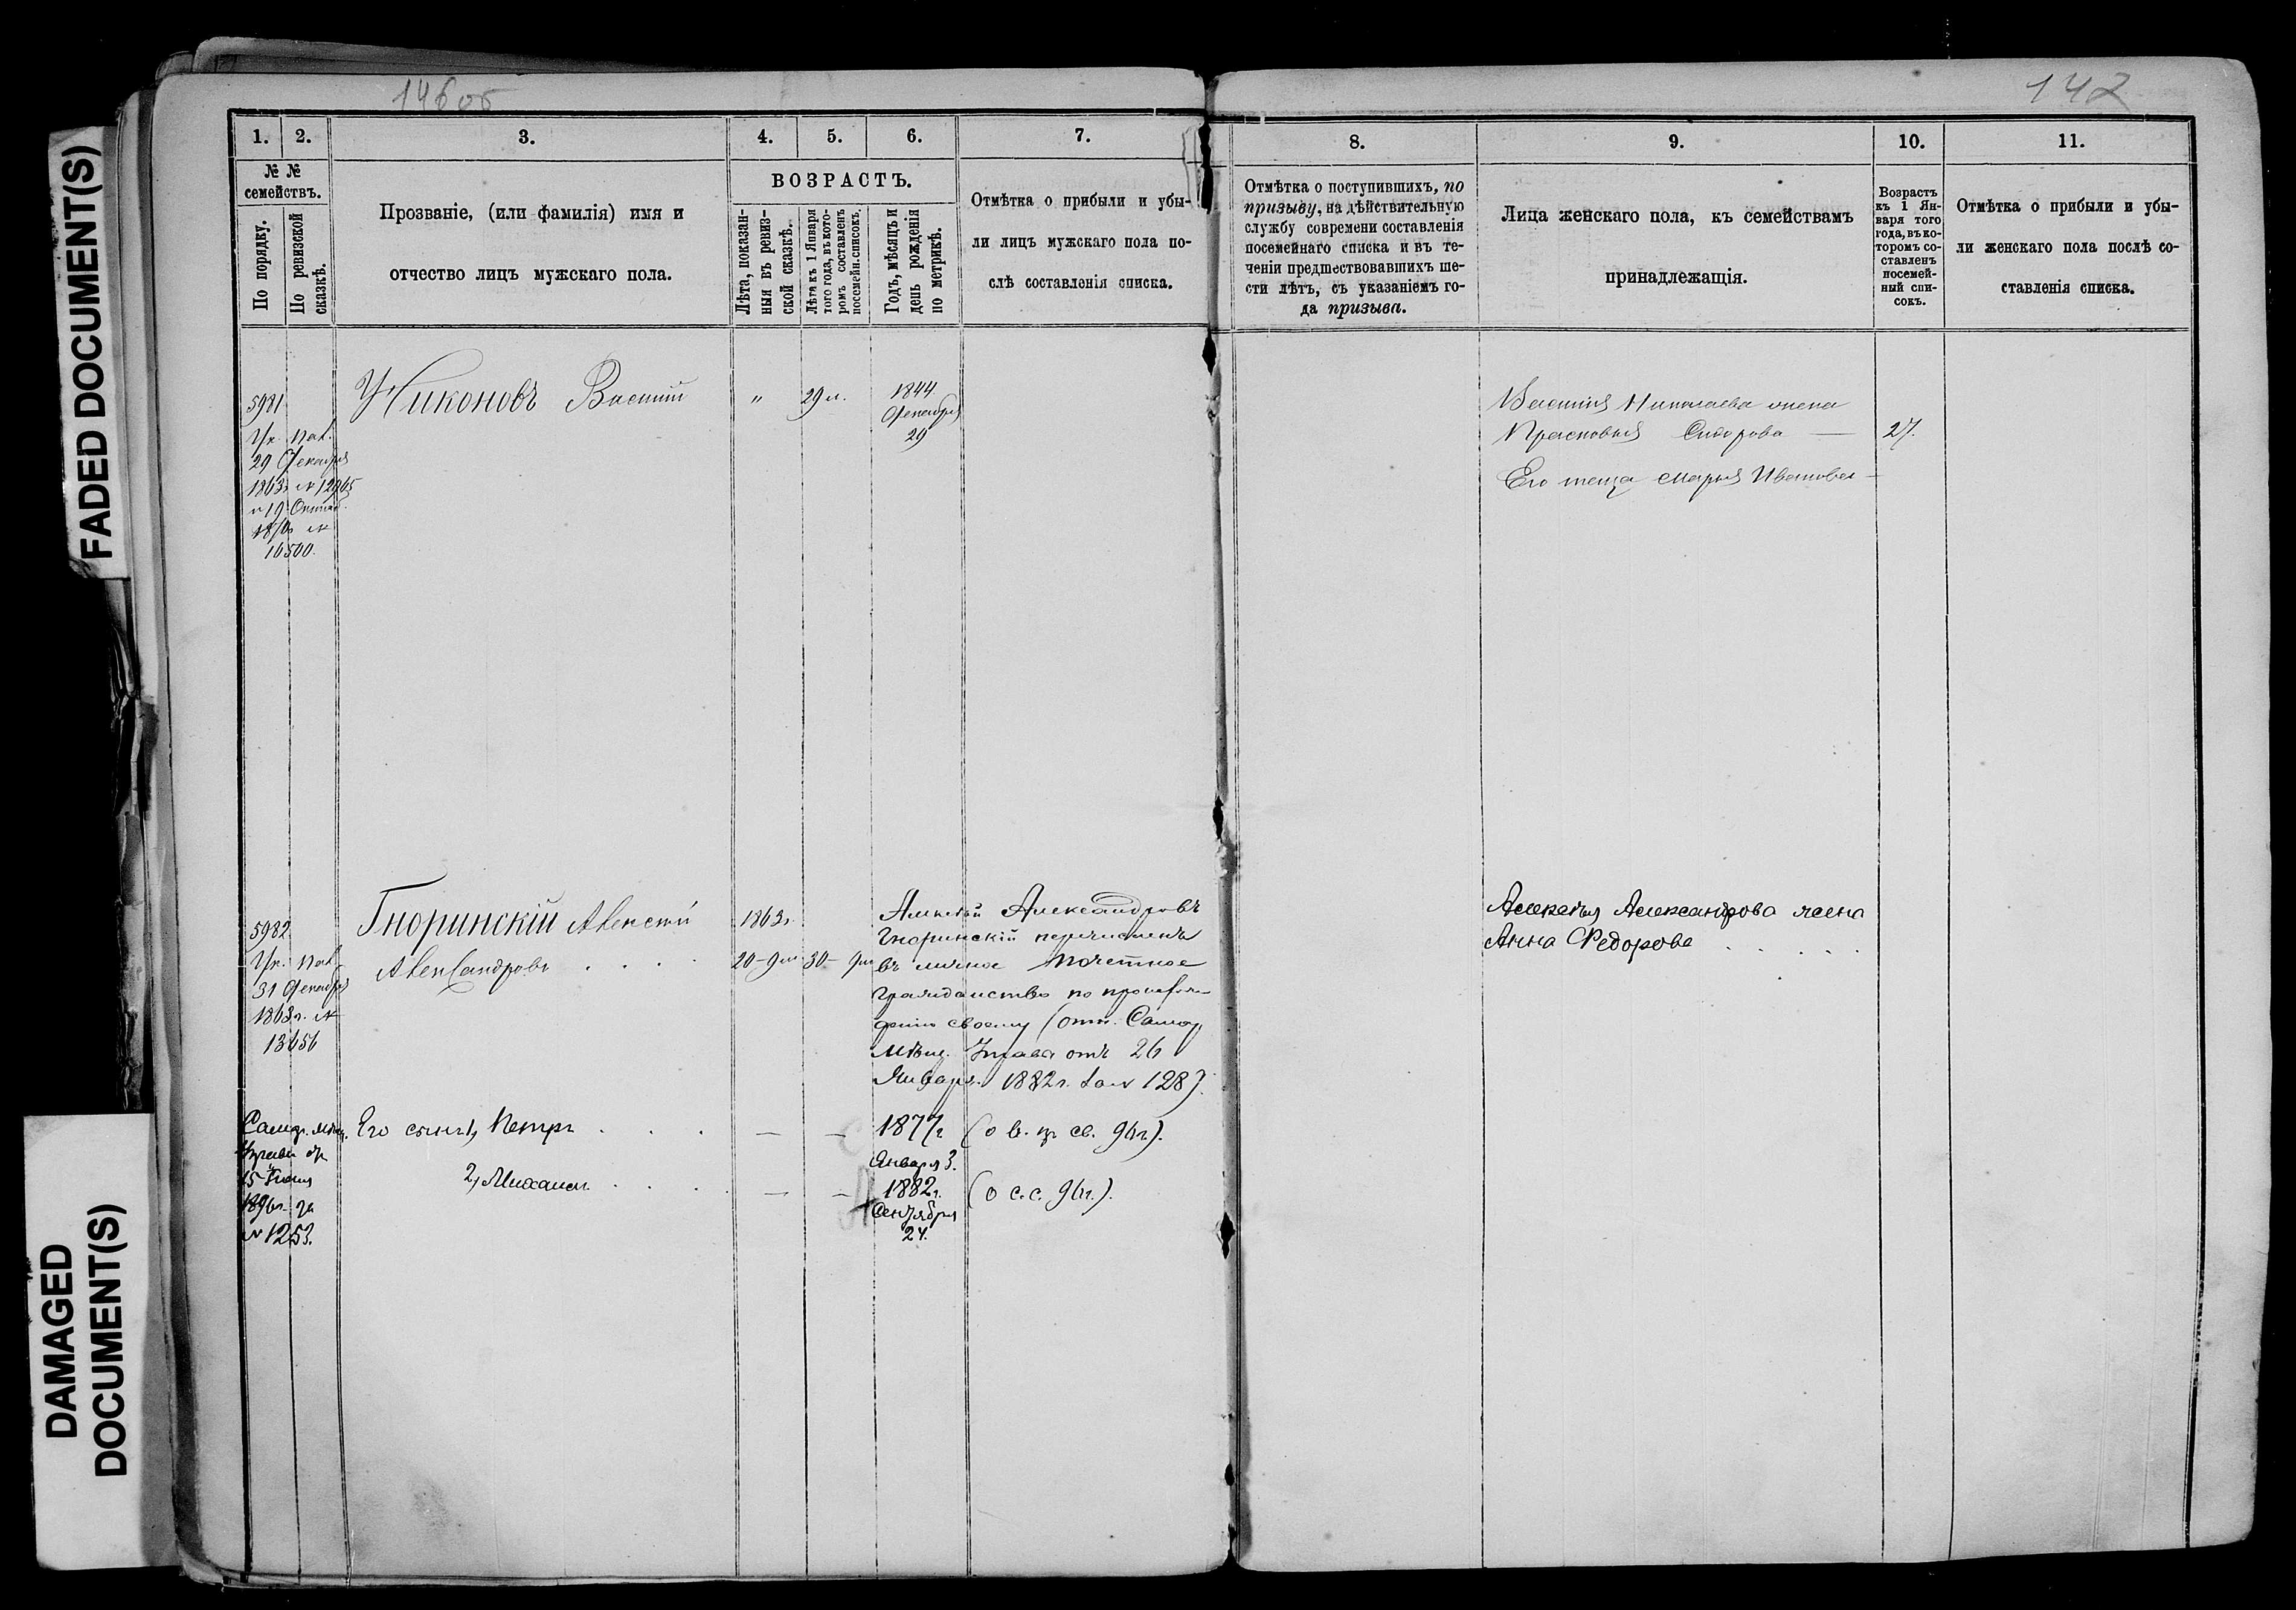 FADED DOCUMENT(S)
DAMAGED
DOCUMENT(S)
146 об
142
1.
2.
3.
4.
5.
6.
7.
8.
9.
10.
11.
№ №
семействъ.
По порядку.
По ревизской
сказкѣ.
Прозваніе, (или фамилія) имя и
отчество лицъ мужскаго пола.
ВОЗРАСТЪ.
Лѣта, показан-
ныя въ ревиз-
ской сказкѣ.
Лѣта къ 1 Января
того года, въ кото-
ромъ составленъ
посемейн. списокъ.
Годъ, мѣсяцъ и
день рожденія
по метрикѣ.
Отмѣтка о прибыли и убы-
ли лицъ мужскаго пола по-
слѣ составленія списка.
Отмѣтка о поступившихъ, по
призыву, на дѣйствительную
службу современи составленія
посемейнаго списка и въ те-
ченіи предшествовавшихъ ше-
сти лѣтъ, съ указаніемъ го-
да призыва.
Лица женскаго пола, къ семействамъ
принадлежащія.
Возрастъ
къ 1 Ян-
варя того
года, въ ко-
торомъ со-
ставленъ
посемей-
ный спи-
сокъ.
Отмѣтка о прибыли и убы-
ли женскаго пола послѣ со-
ставленія списка.
5981
Ук. Пал.
29 Декабря
1863 №
и 19
№
16500.
Никоновъ Василій
"
29 л.
1844
Декабря
29
Василія Николаева жена
Прасковья Сидорова —
27.
Его теща Марья Иванова —
5982
Ук. Пал.
31 Декабря
1863 г. №
13656
Гноринскій Алексѣй
Александровъ . . . .
1863 г.
20-9 м
30- 9 м
Алексѣй Александровъ
Гноринскій перечисленъ
въ личное Почетное
гражданство по происхож-
денію своему (отн. Самар
Мѣщ. Управа отъ 26
Января 1882 г. за № 128).
Самар. Мѣщ.
Управы от
15 Іюня
1896 г. за
№ 1253.
Его сынъ 1, Петръ . . .
— —
1877 г
Января 3.
2, Михаилъ . . . .
— —
1882 г.
Сентября
24.
(о с. с. 96 г.).
Алексѣя Александрова жена
Анна Федорова . . . .